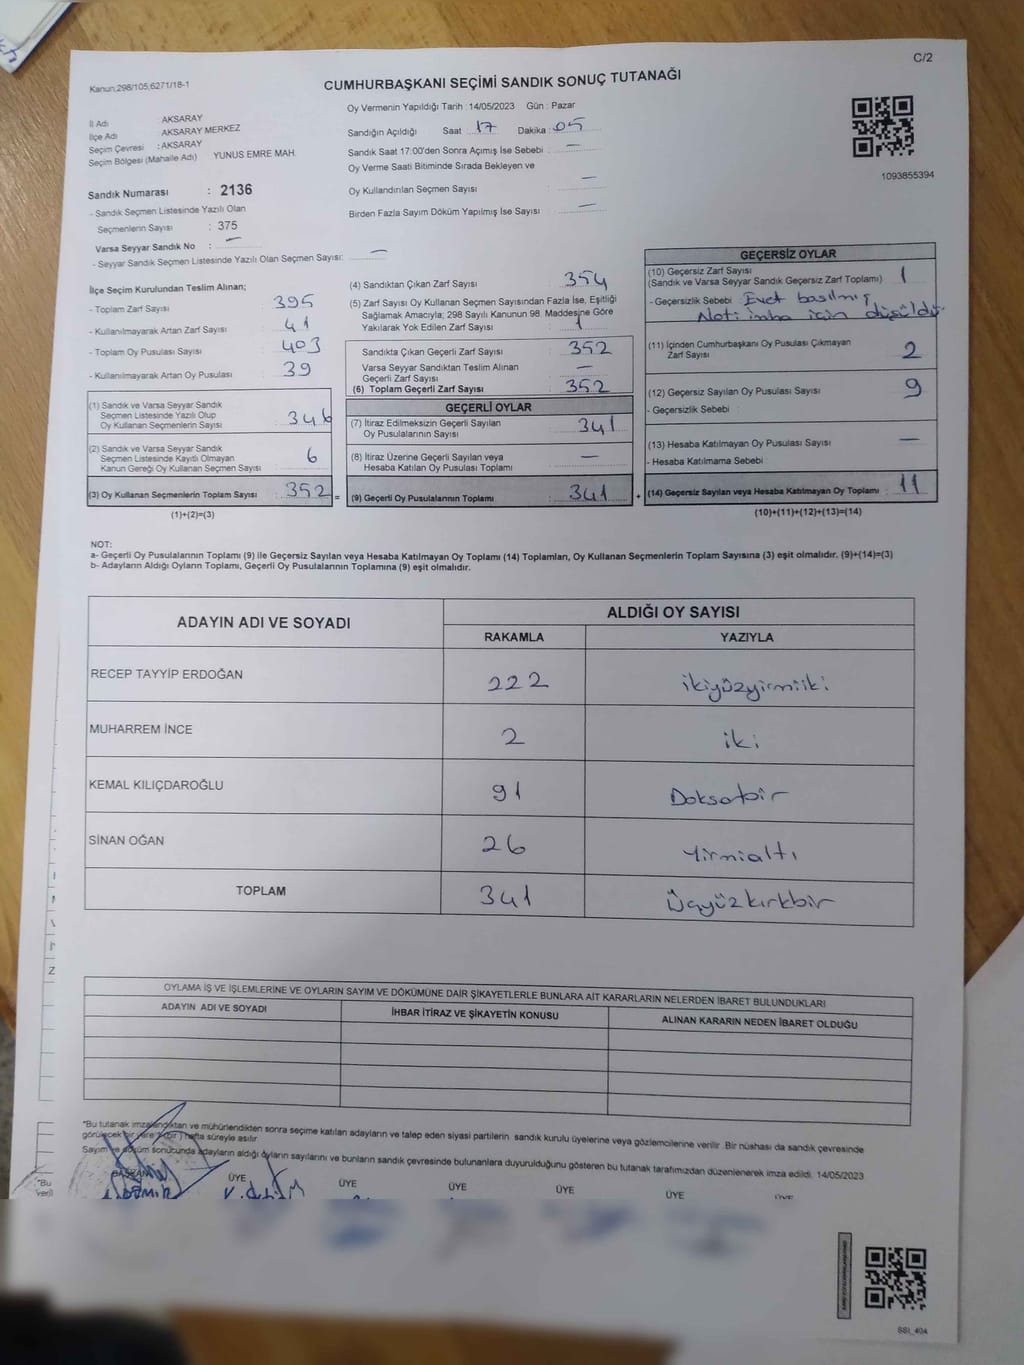 C/2
Kanun,298/105,6271/18-1
CUMHURBAŞKANI SEÇİMİ SANDIK SONUÇ TUTANAĞI
İl Adı : AKSARAY
İlçe Adı AKSARAY MERKEZ
Seçim Çevresi : AKSARAY
Seçim Bölgesi (Mahalle Adı) YUNUS EMRE MAH.
Sandık Numarası : 2136
- Sandık Seçmen Listesinde Yazılı Olan
Seçmenlerin Sayısı : 375
Varsa Seyyar Sandık No : —
- Seyyar Sandık Seçmen Listesinde Yazılı Olan Seçmen Sayısı: —
Oy Vermenin Yapıldığı Tarih : 14/05/2023 Gün : Pazar
Sandığın Açıldığı Saat 17 Dakika : 05
Sandık Saat 17:00'den Sonra Açımış İse Sebebi : —
Oy Verme Saati Bitiminde Sırada Bekleyen ve
Oy Kullandırılan Seçmen Sayısı : —
Birden Fazla Sayım Döküm Yapılmış İse Sayısı : —
1093855394
İlçe Seçim Kurulundan Teslim Alınan;
- Toplam Zarf Sayısı : 395
- Kullanılmayarak Artan Zarf Sayısı : 41
- Toplam Oy Pusulası Sayısı : 403
- Kullanılmayarak Artan Oy Pusulası : 39
(1) Sandık ve Varsa Seyyar Sandık
Seçmen Listesinde Yazılı Olup
Oy Kullanan Seçmenlerin Sayısı 346
(2) Sandık ve Varsa Seyyar Sandık
Seçmen Listesinde Kayıtlı Olmayan
Kanun Gereği Oy Kullanan Seçmen Sayısı 6
(3) Oy Kullanan Seçmenlerin Toplam Sayısı : 352 =
(1)+(2)=(3)
(4) Sandıktan Çıkan Zarf Sayısı : 354
(5) Zarf Sayısı Oy Kullanan Seçmen Sayısından Fazla İse, Eşitliği
Sağlamak Amacıyla; 298 Sayılı Kanunun 98. Maddesine Göre
Yakılarak Yok Edilen Zarf Sayısı : 1
Sandıkta Çıkan Geçerli Zarf Sayısı : 352
Varsa Seyyar Sandıktan Teslim Alınan
Geçerli Zarf Sayısı : —
(6) Toplam Geçerli Zarf Sayısı : 352
GEÇERLİ OYLAR
(7) İtiraz Edilmeksizin Geçerli Sayılan
Oy Pusulalarının Sayısı : 341
(8) İtiraz Üzerine Geçerli Sayılan veya
Hesaba Katılan Oy Pusulası Toplamı : —
(9) Geçerli Oy Pusulalarının Toplamı : 341 +
GEÇERSİZ OYLAR
(10) Geçersiz Zarf Sayısı
(Sandık ve Varsa Seyyar Sandık Geçersiz Zarf Toplamı) : 1
- Geçersizlik Sebebi : Evet basılmış
Not: imha için düşüldü.
(11) İçinden Cumhurbaşkanı Oy Pusulası Çıkmayan
Zarf Sayısı : 2
(12) Geçersiz Sayılan Oy Pusulası Sayısı : 9
- Geçersizlik Sebebi :
(13) Hesaba Katılmayan Oy Pusulası Sayısı : —
- Hesaba Katılmama Sebebi :
(14) Geçersiz Sayılan veya Hesaba Katılmayan Oy Toplamı : 11
(10)+(11)+(12)+(13)=(14)
NOT:
a- Geçerli Oy Pusulalarının Toplamı (9) ile Geçersiz Sayılan veya Hesaba Katılmayan Oy Toplamı (14) Toplamları, Oy Kullanan Seçmenlerin Toplam Sayısına (3) eşit olmalıdır. (9)+(14)=(3)
b- Adayların Aldığı Oyların Toplamı, Geçerli Oy Pusulalarının Toplamına (9) eşit olmalıdır.
ADAYIN ADI VE SOYADI
ALDIĞI OY SAYISI
RAKAMLA YAZIYLA
RECEP TAYYİP ERDOĞAN 222 ikiyüzyirmiiki
MUHARREM İNCE 2 iki
KEMAL KILIÇDAROĞLU 91 Doksabir
SİNAN OĞAN 26 Yirmialtı
TOPLAM 341 Üçyüzkırkbir
OYLAMA İŞ VE İŞLEMLERİNE VE OYLARIN SAYIM VE DÖKÜMÜNE DAİR ŞİKAYETLERLE BUNLARA AİT KARARLARIN NELERDEN İBARET BULUNDUKLARI
ADAYIN ADI VE SOYADI İHBAR İTİRAZ VE ŞİKAYETİN KONUSU ALINAN KARARIN NEDEN İBARET OLDUĞU
*Bu tutanak imzalandıktan ve mühürlendikten sonra seçime katılan adayların ve talep eden siyasi partilerin sandık kurulu üyelerine veya gözlemcilerine verilir. Bir nüshası da sandık çevresinde
görülecek bir yere 1 (bir) hafta süreyle asılır.
Sayım ve döküm sonucunda adayların aldığı oyların sayılarını ve bunların sandık çevresinde bulunanlara duyurulduğunu gösteren bu tutanak tarafımızdan düzenlenerek imza edildi. 14/05/2023
BAŞKAN ÜYE ÜYE ÜYE ÜYE ÜYE ÜYE
*Bu
SSI_404